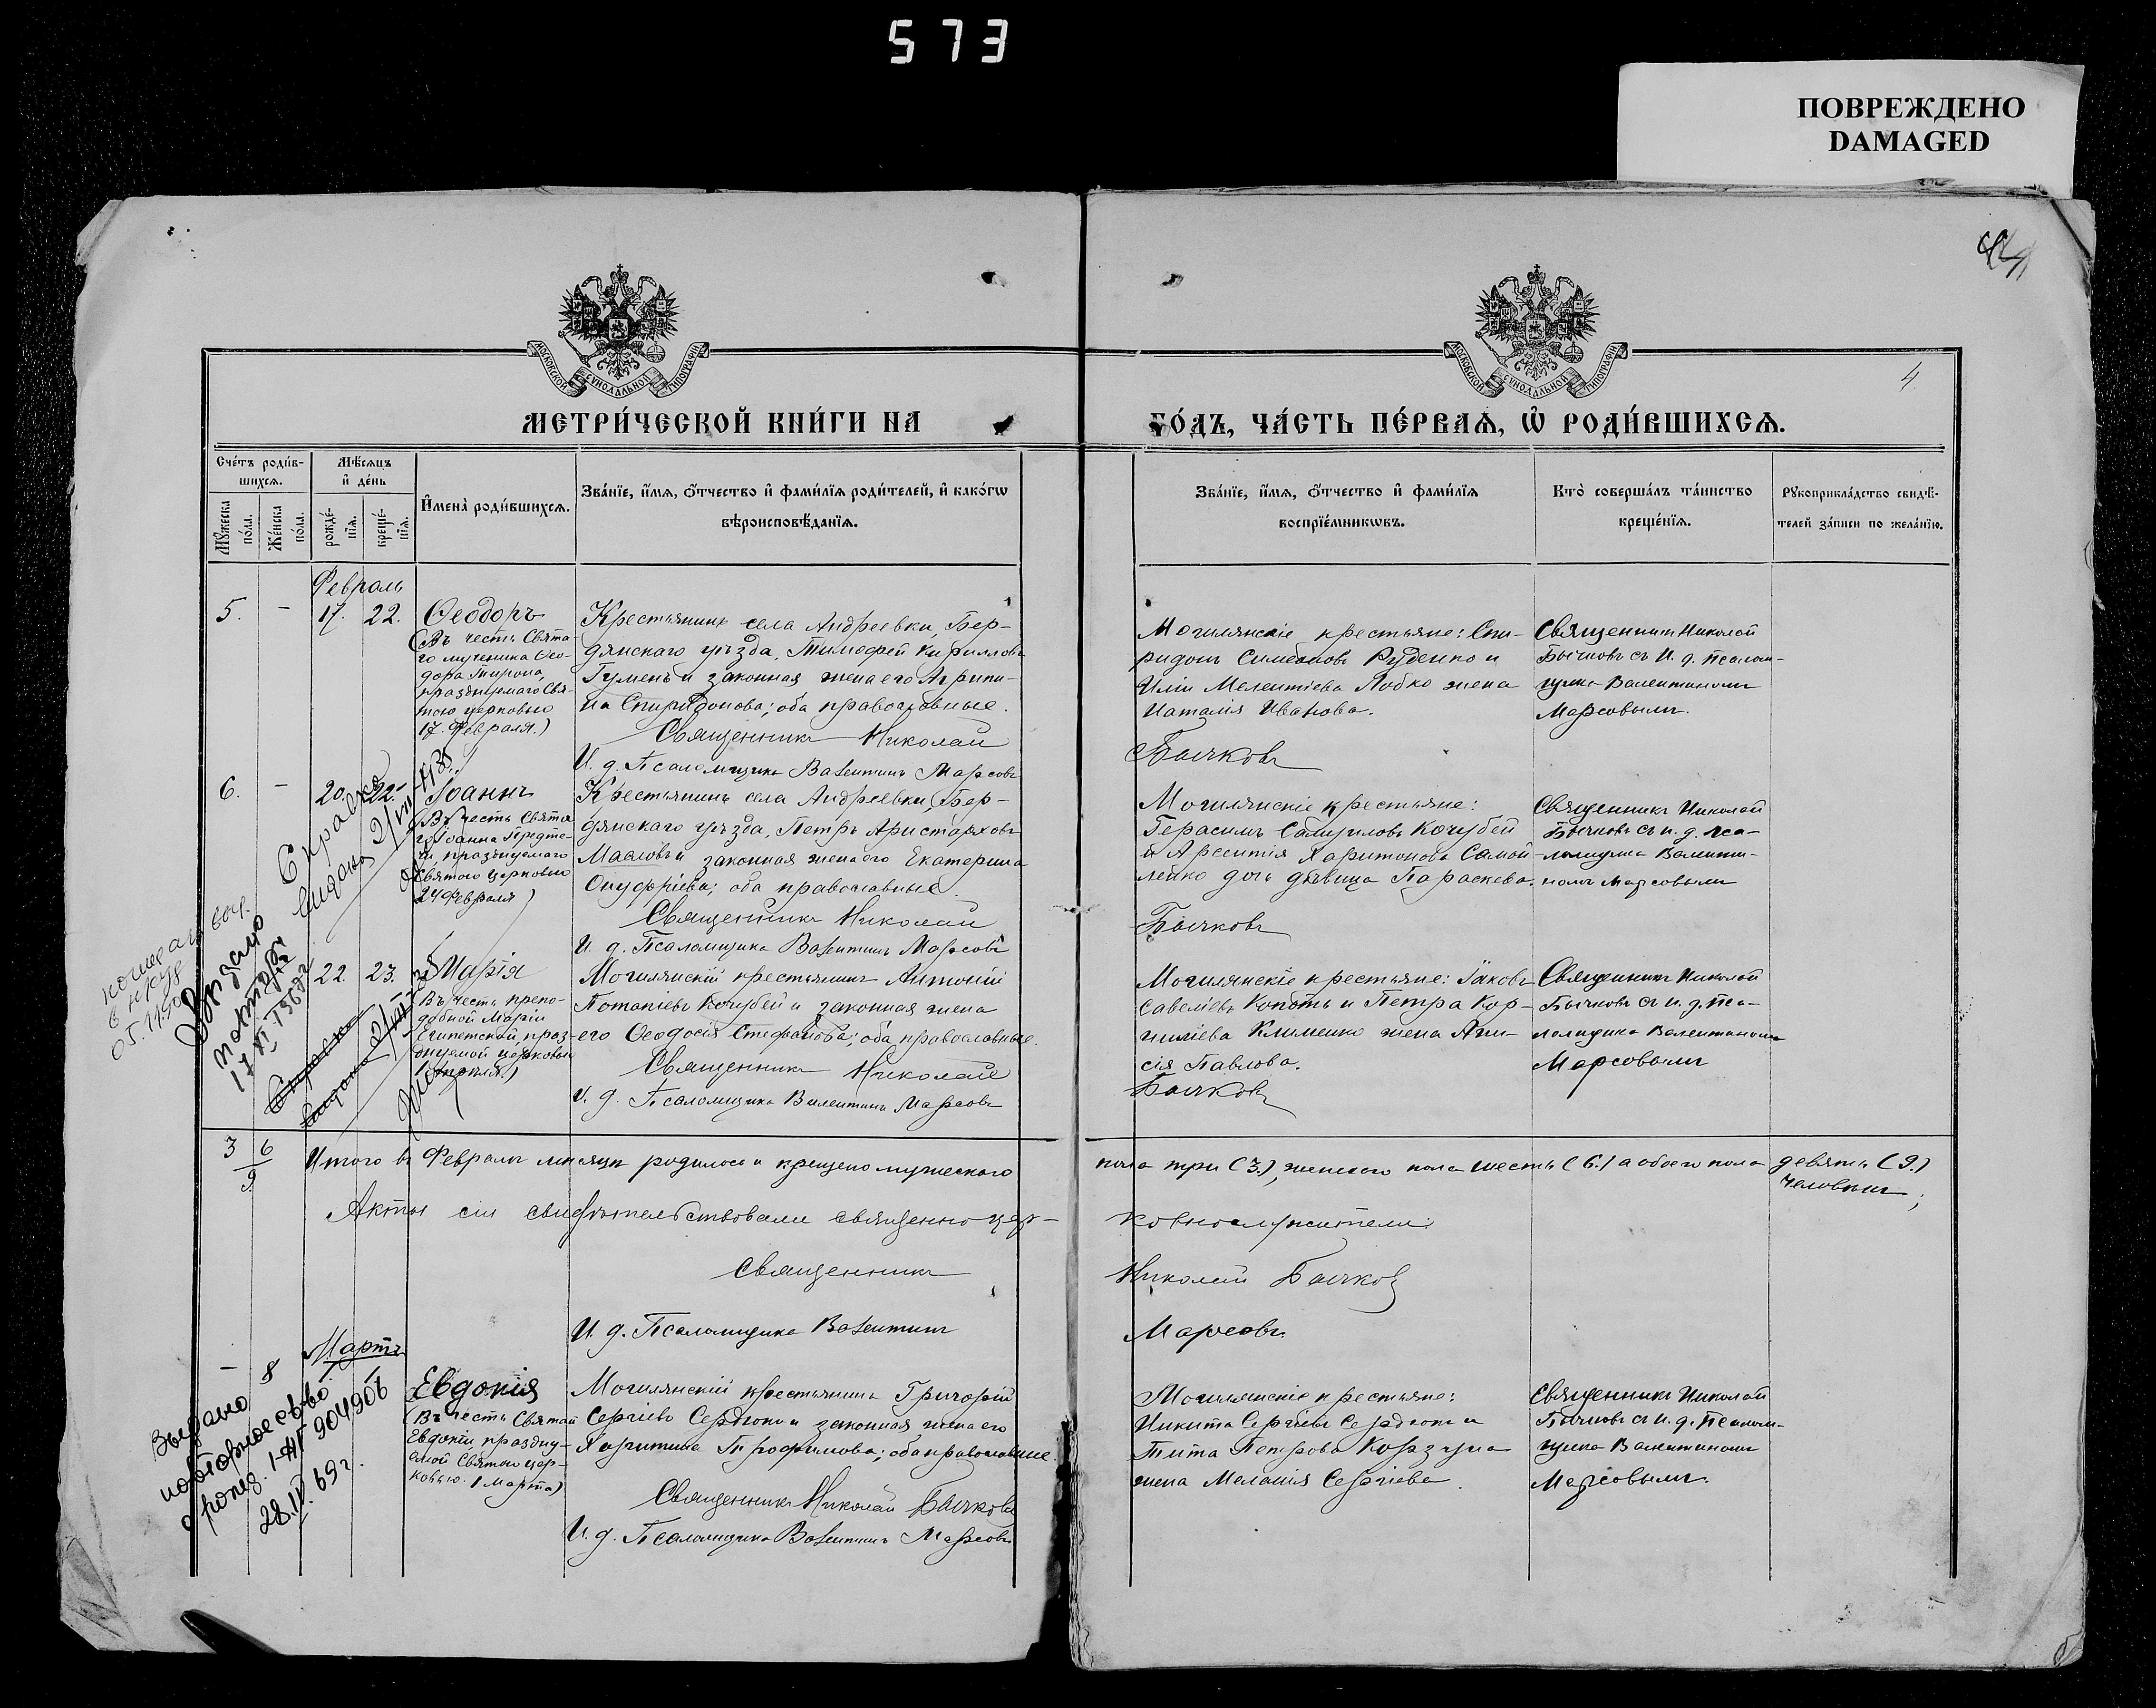 573
ПОВРЕЖДЕНО
DAMAGED
4
МОСКОВСКОЙ СѴНОДАЛЬНОЙ ТИПОГРАФІИ
МОСКОВСКОЙ СѴНОДАЛЬНОЙ ТИПОГРАФІИ
МЕТРИ́ЧЕСКОЙ КНИ́ГИ НА
ГО́ДЪ, ЧА́СТЬ ПЕ́РВАѦ, Ѡ҆ РОДИ́ВШИХСѦ.
Сче́тъ роди́в-
шихсѧ.
Мꙋ́жеска по́ла.
Же́нска по́ла.
Мѣ́сѧцъ
и҆ де́нь
рожде́-
нїѧ.
креще́-
нїѧ.
И҆мена̀ роди́вшихсѧ.
Зва́нїе, и҆́мѧ, ѻ҆́тчество и҆ фами́лїѧ роди́телей, и҆ како́гѡ
вѣроисповѣ́данїѧ.
Зва́нїе, и҆́мѧ, ѻ҆́тчество и҆ фами́лїѧ
воспрїе́мникѡвъ.
Кто̀ соверша́лъ та́инство
креще́нїѧ.
Рꙋкоприкла́дство свидѣ́-
телей за́писи по жела́нїю.
Февраль
5. - 17. 22. Ѳеодоръ
(Въ честь Свята-
го мученика Ѳео-
дора Тирона,
празднуемаго Свя-
тою церковью
17. Февраля.)
Крестьянинъ села Андреевки, Бер-
дянскаго уѣзда, Тимофей Кирилловъ
Гумень и законная жена его Агрипи-
на Спиридонова; оба православные.
Священникъ Николай
И. д. Псаломщика Валентинъ Марсовъ
Могилянскіе крестьяне: Спи-
ридонъ Симеоновъ Руденко и
Иліи Мелентіева Лобко жена
Наталія Иванова.
Бычковъ
Священникъ Николай
Бычковъ съ И. д. псалом-
щика Валентиномъ
Марсовымъ.
6. - 20. 22. Іоаннъ
(Въ честь Свята
го Іоанна Предте-
чи, празднуемаго
Святою церковью
24 Февраля)
Крестьянинъ села Андреевки, Бер-
дянскаго уѣзда, Петръ Аристарховъ
Масловъ и законная жена его Екатерина
Онуфріева; оба православные.
Священникъ Николай
И. д. Псаломщика Валентинъ Марсовъ
Могилянскіе крестьяне:
Герасимъ Самуиловъ Кочубей
и Арсентія Харитонова Самой-
ленко дочь дѣвица Параскева.
Бычковъ
Священникъ Николай
Бычковъ съ и. д. пса-
ломщика Валенти-
номъ Марсовымъ
22. 23. Марія
(Въ честь препо-
добной Маріи
Египетской, праз-
днуемой церковью
1 апрѣля.)
Могилянскій крестьянинъ Антоній
Потапіевъ Кочубей и законная жена
его Ѳеодосія Стефанова; оба православные.
Священникъ Николай
И. д. Псаломщика Валентинъ Марсовъ
Могилянскіе крестьяне: Іаковъ
Савеліевъ Копоть и Петра Кор-
ниліева Клименко жена Ани-
сія Павлова.
Бычковъ
Священникъ Николай
Бычковъ съ и. д. пса-
ломщика Валентиномъ
Марсовымъ
Справка
выдана
05.11.90
Выдано
повторн
17 XI 1967г
Справка
выдана
3 6
9
Итого въ Февралѣ мѣсяцѣ родилось и крещено мужескаго
пола три (3.), женскаго пола шесть (6.) а обоего пола девять (9.)
человѣкъ;
Акты сіи свидѣтельствовали священно-цер-
ковнослужители:
Священникъ
Николай Бычковъ
И. д. Псаломщика Валентинъ
Марсовъ.
Мартъ
- 8 1 1 Евдокія
(Въ честь Святой
Евдокіи, праздну-
емой Святою цер-
ковью 1 марта)
Могилянскій крестьянинъ Григорій
Сергіевъ Сердюкъ и законная жена его
Харитина Трофимова; оба православные.
Священникъ Николай Бычковъ
И. д. Псаломщика Валентинъ Марсовъ
Могилянскіе крестьяне:
Никита Сергіевъ Сердюкъ и
Тита Петрова Корзуна
жена Меланія Сергіева.
Священникъ Николай
Бычковъ съ И. д. псалом-
щика Валентиномъ
Марсовымъ.
Выдано
повторное св-во
о рожд. 904906
28.IV.69г.